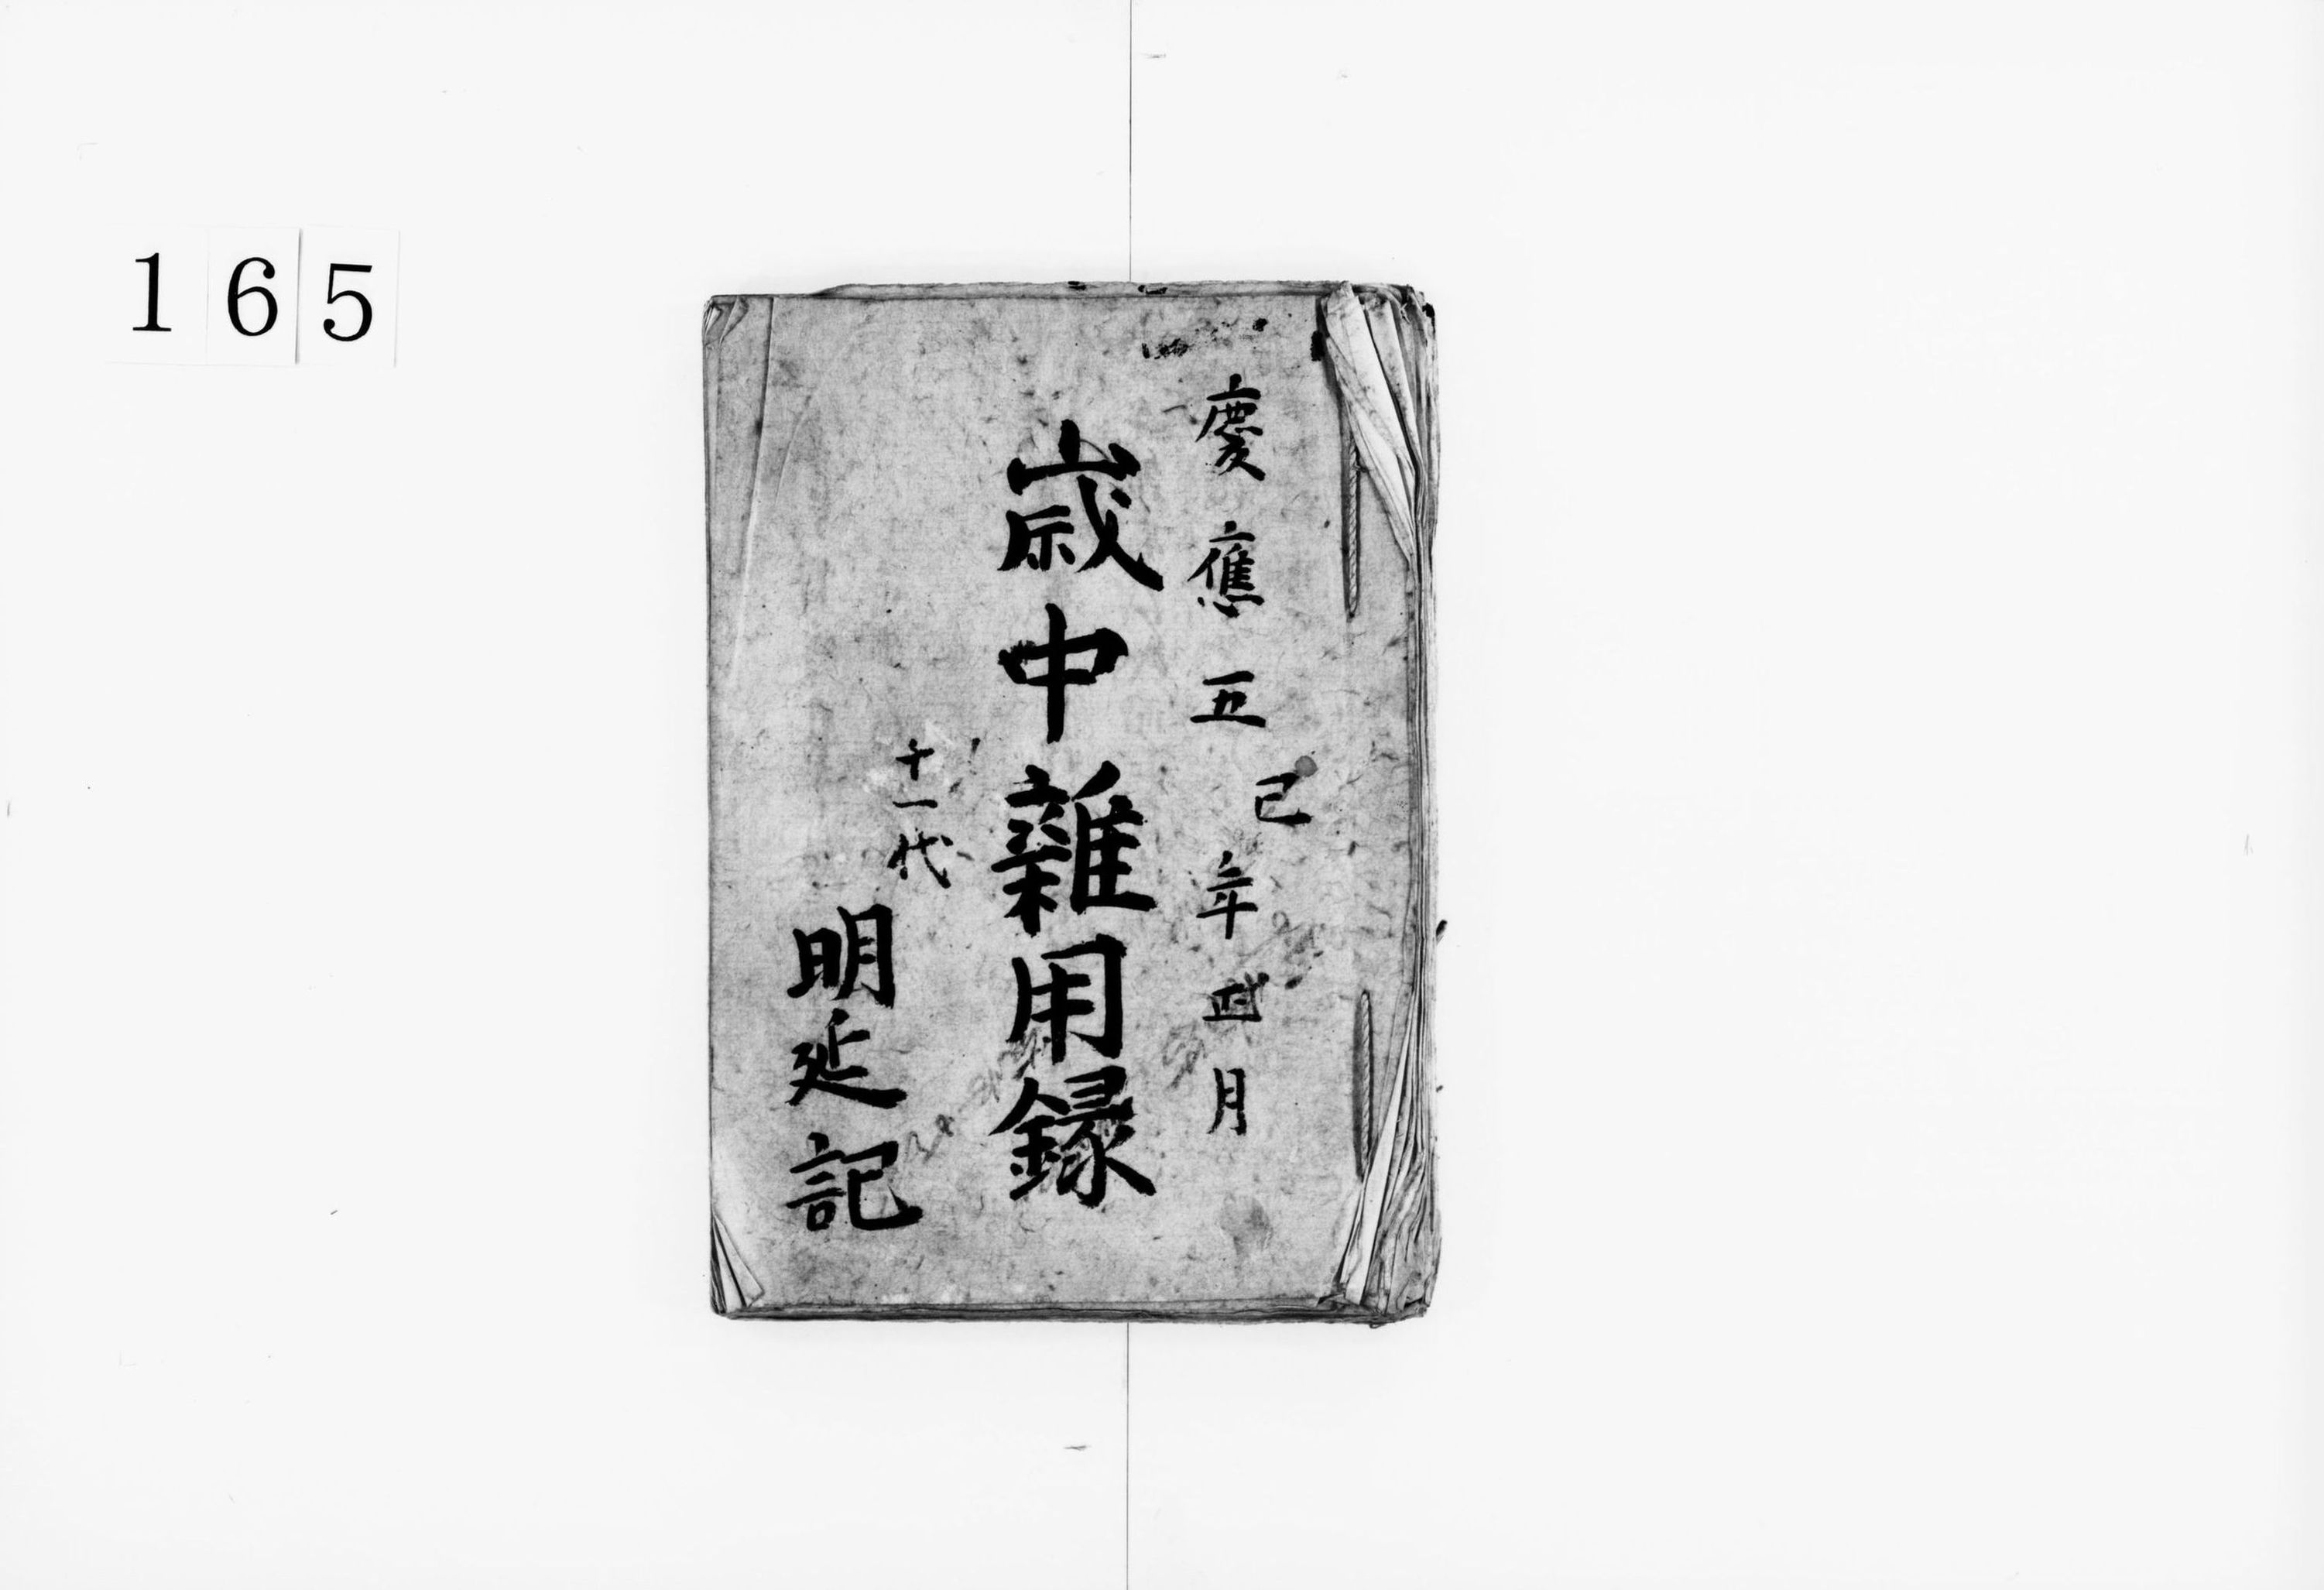 165
慶應五巳年 月
歳中雜用録
十一代
明延記